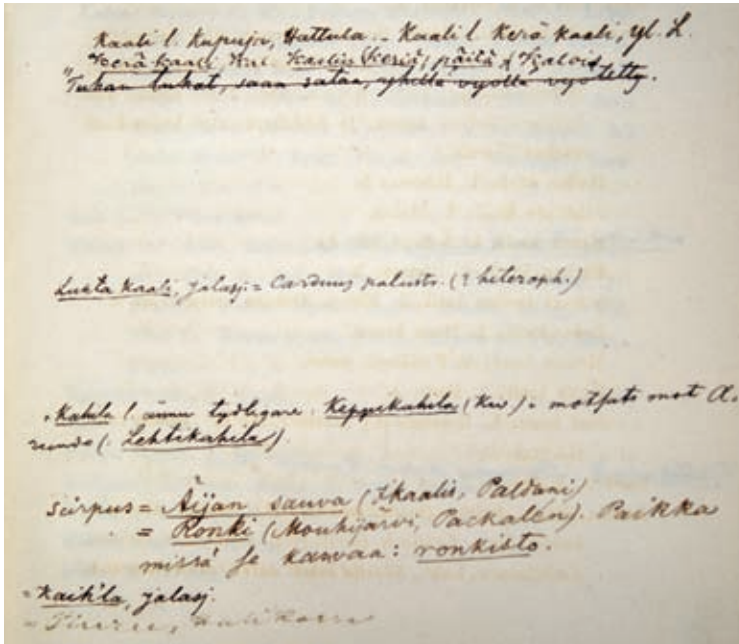 Kaali l. Kupuja, Hattula. – Kaali l. Kerä kaali, yl. L.
Kerä kaali, Kaalin Keriä, päitä
"Tuhan tukat, saan satan, yhellä vyöllä vyötetty.
Lukta kaali, jalasj. = Carduus palustr. (? heteroph.)
Kahila l. ännu tydligare: Keppikahila (Kuv) = motsats mot A.
rundo (: Lehtikahila).
Scirpus = Äijan sauva (Ikaalis, Paldani)
= Ronki (Mouhijärvi, Packalén). Paikka
missä se kasvaa: ronkisto.
= Kaihla, jalasj.